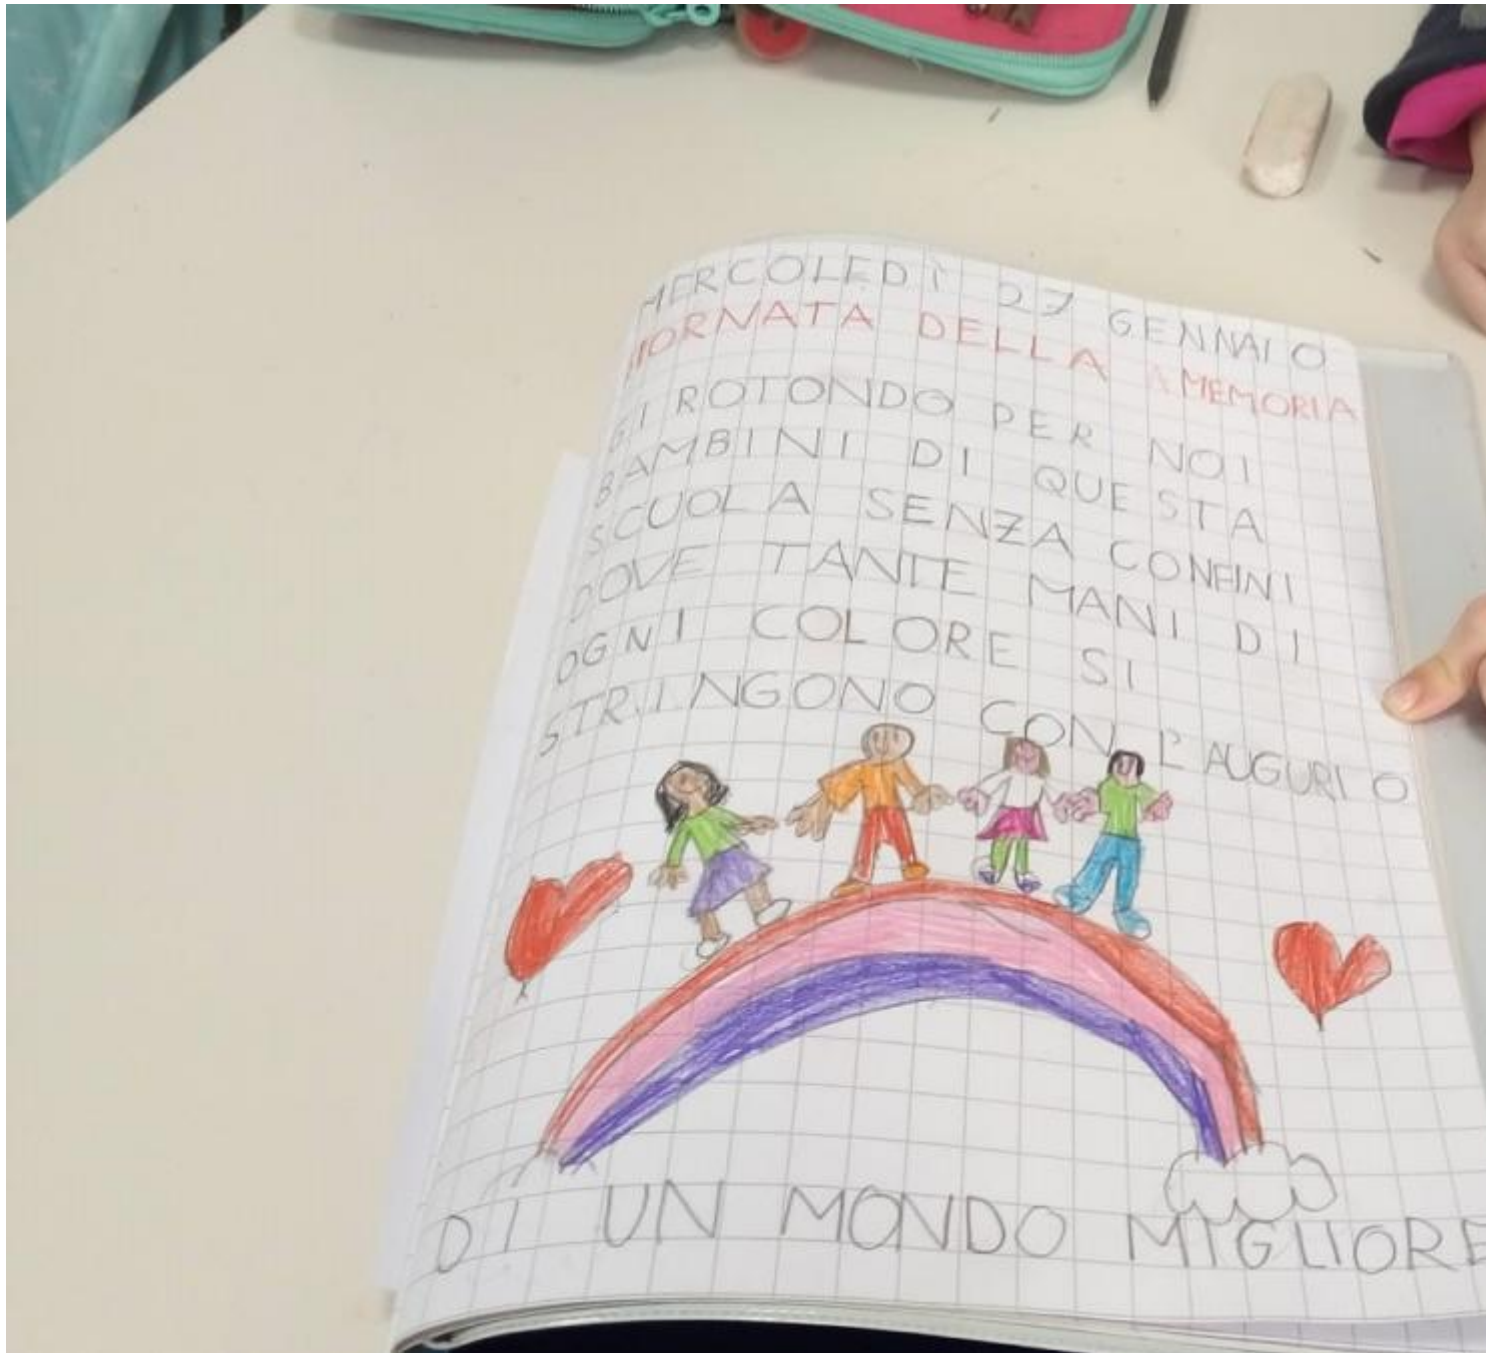 MERCOLEDÌ 27 GENNAIO
GIORNATA DELLA MEMORIA
GIROTONDO PER NOI
BAMBINI DI QUESTA
SCUOLA SENZA CONFINI
DOVE TANTE MANI DI
OGNI COLORE SI
STRINGONO CON L'AUGURIO
DI UN MONDO MIGLIORE